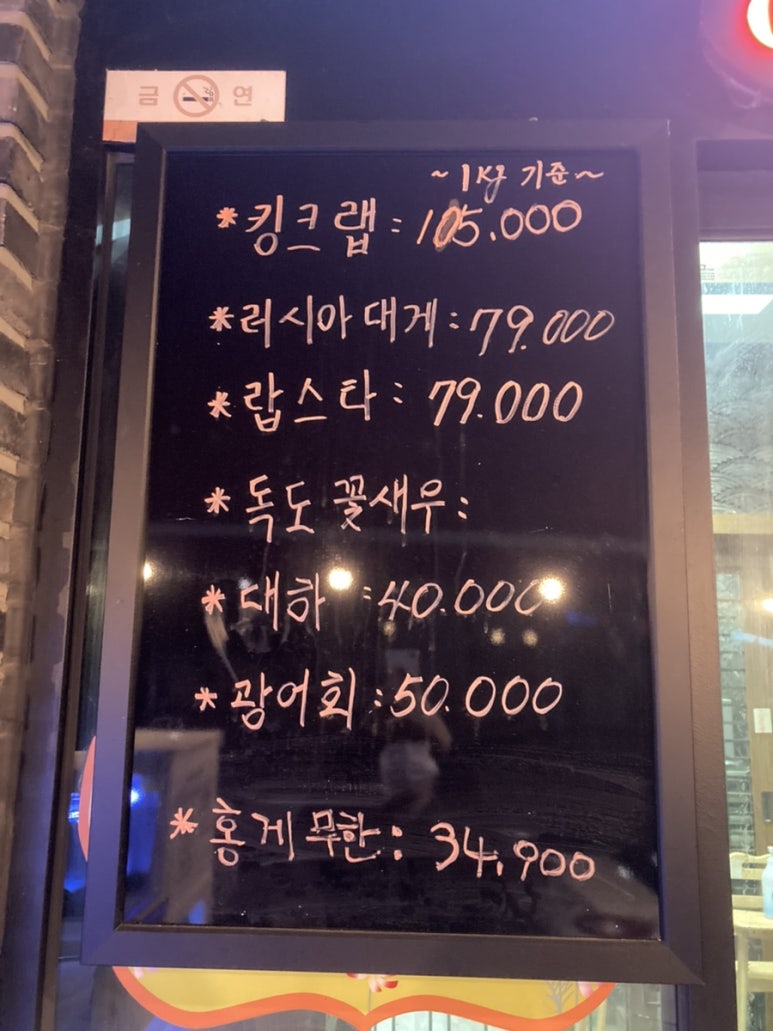 금 연
~1Kg 기준~
*킹크랩:105.000
*러시아대게:79.000
*랍스타:79.000
*독도 꽃새우:
*대하:40.000
*광어회:50.000
*홍게무한:34,900